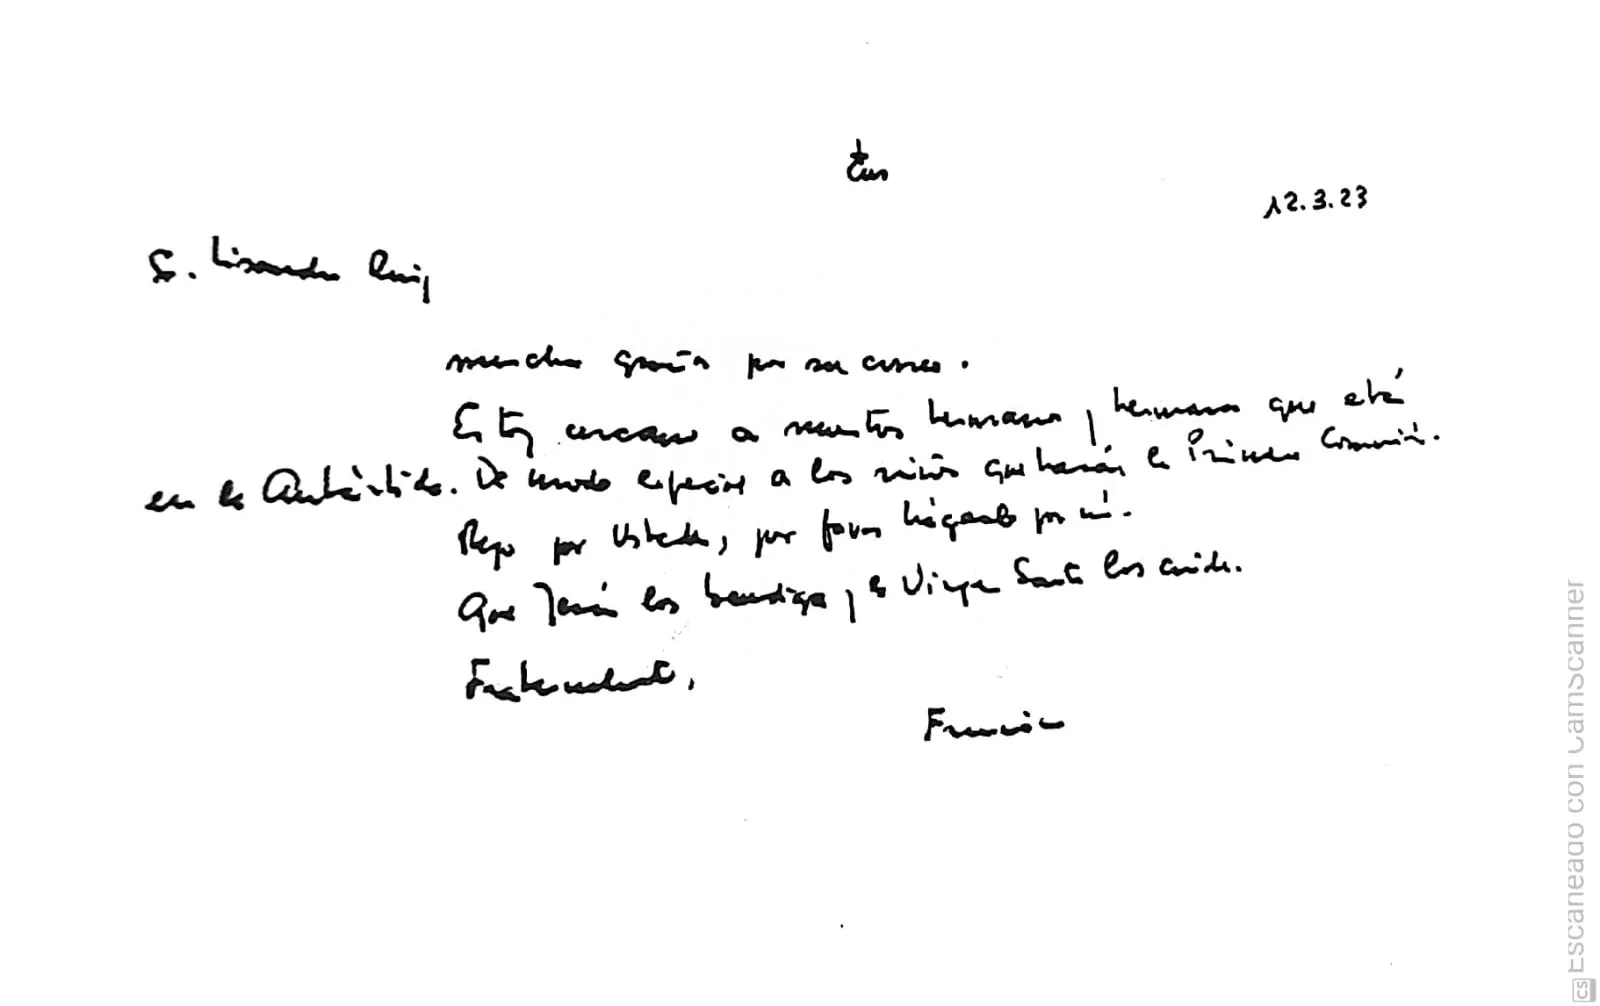 12.3.23
S. Lisandro Ruiz
muchas gracias por su correo.
Estoy cercano a nuestros hermanos y hermanas que están
en la Antártida. De modo especial a los niños que harán la Primera Comunión.
Rezo por Ustedes, por favor háganlo por mí.
Que Jesús los bendiga y la Virgen Santa los cuide.
Fraternalmente,
Francisco
CS Escaneado con CamScanner